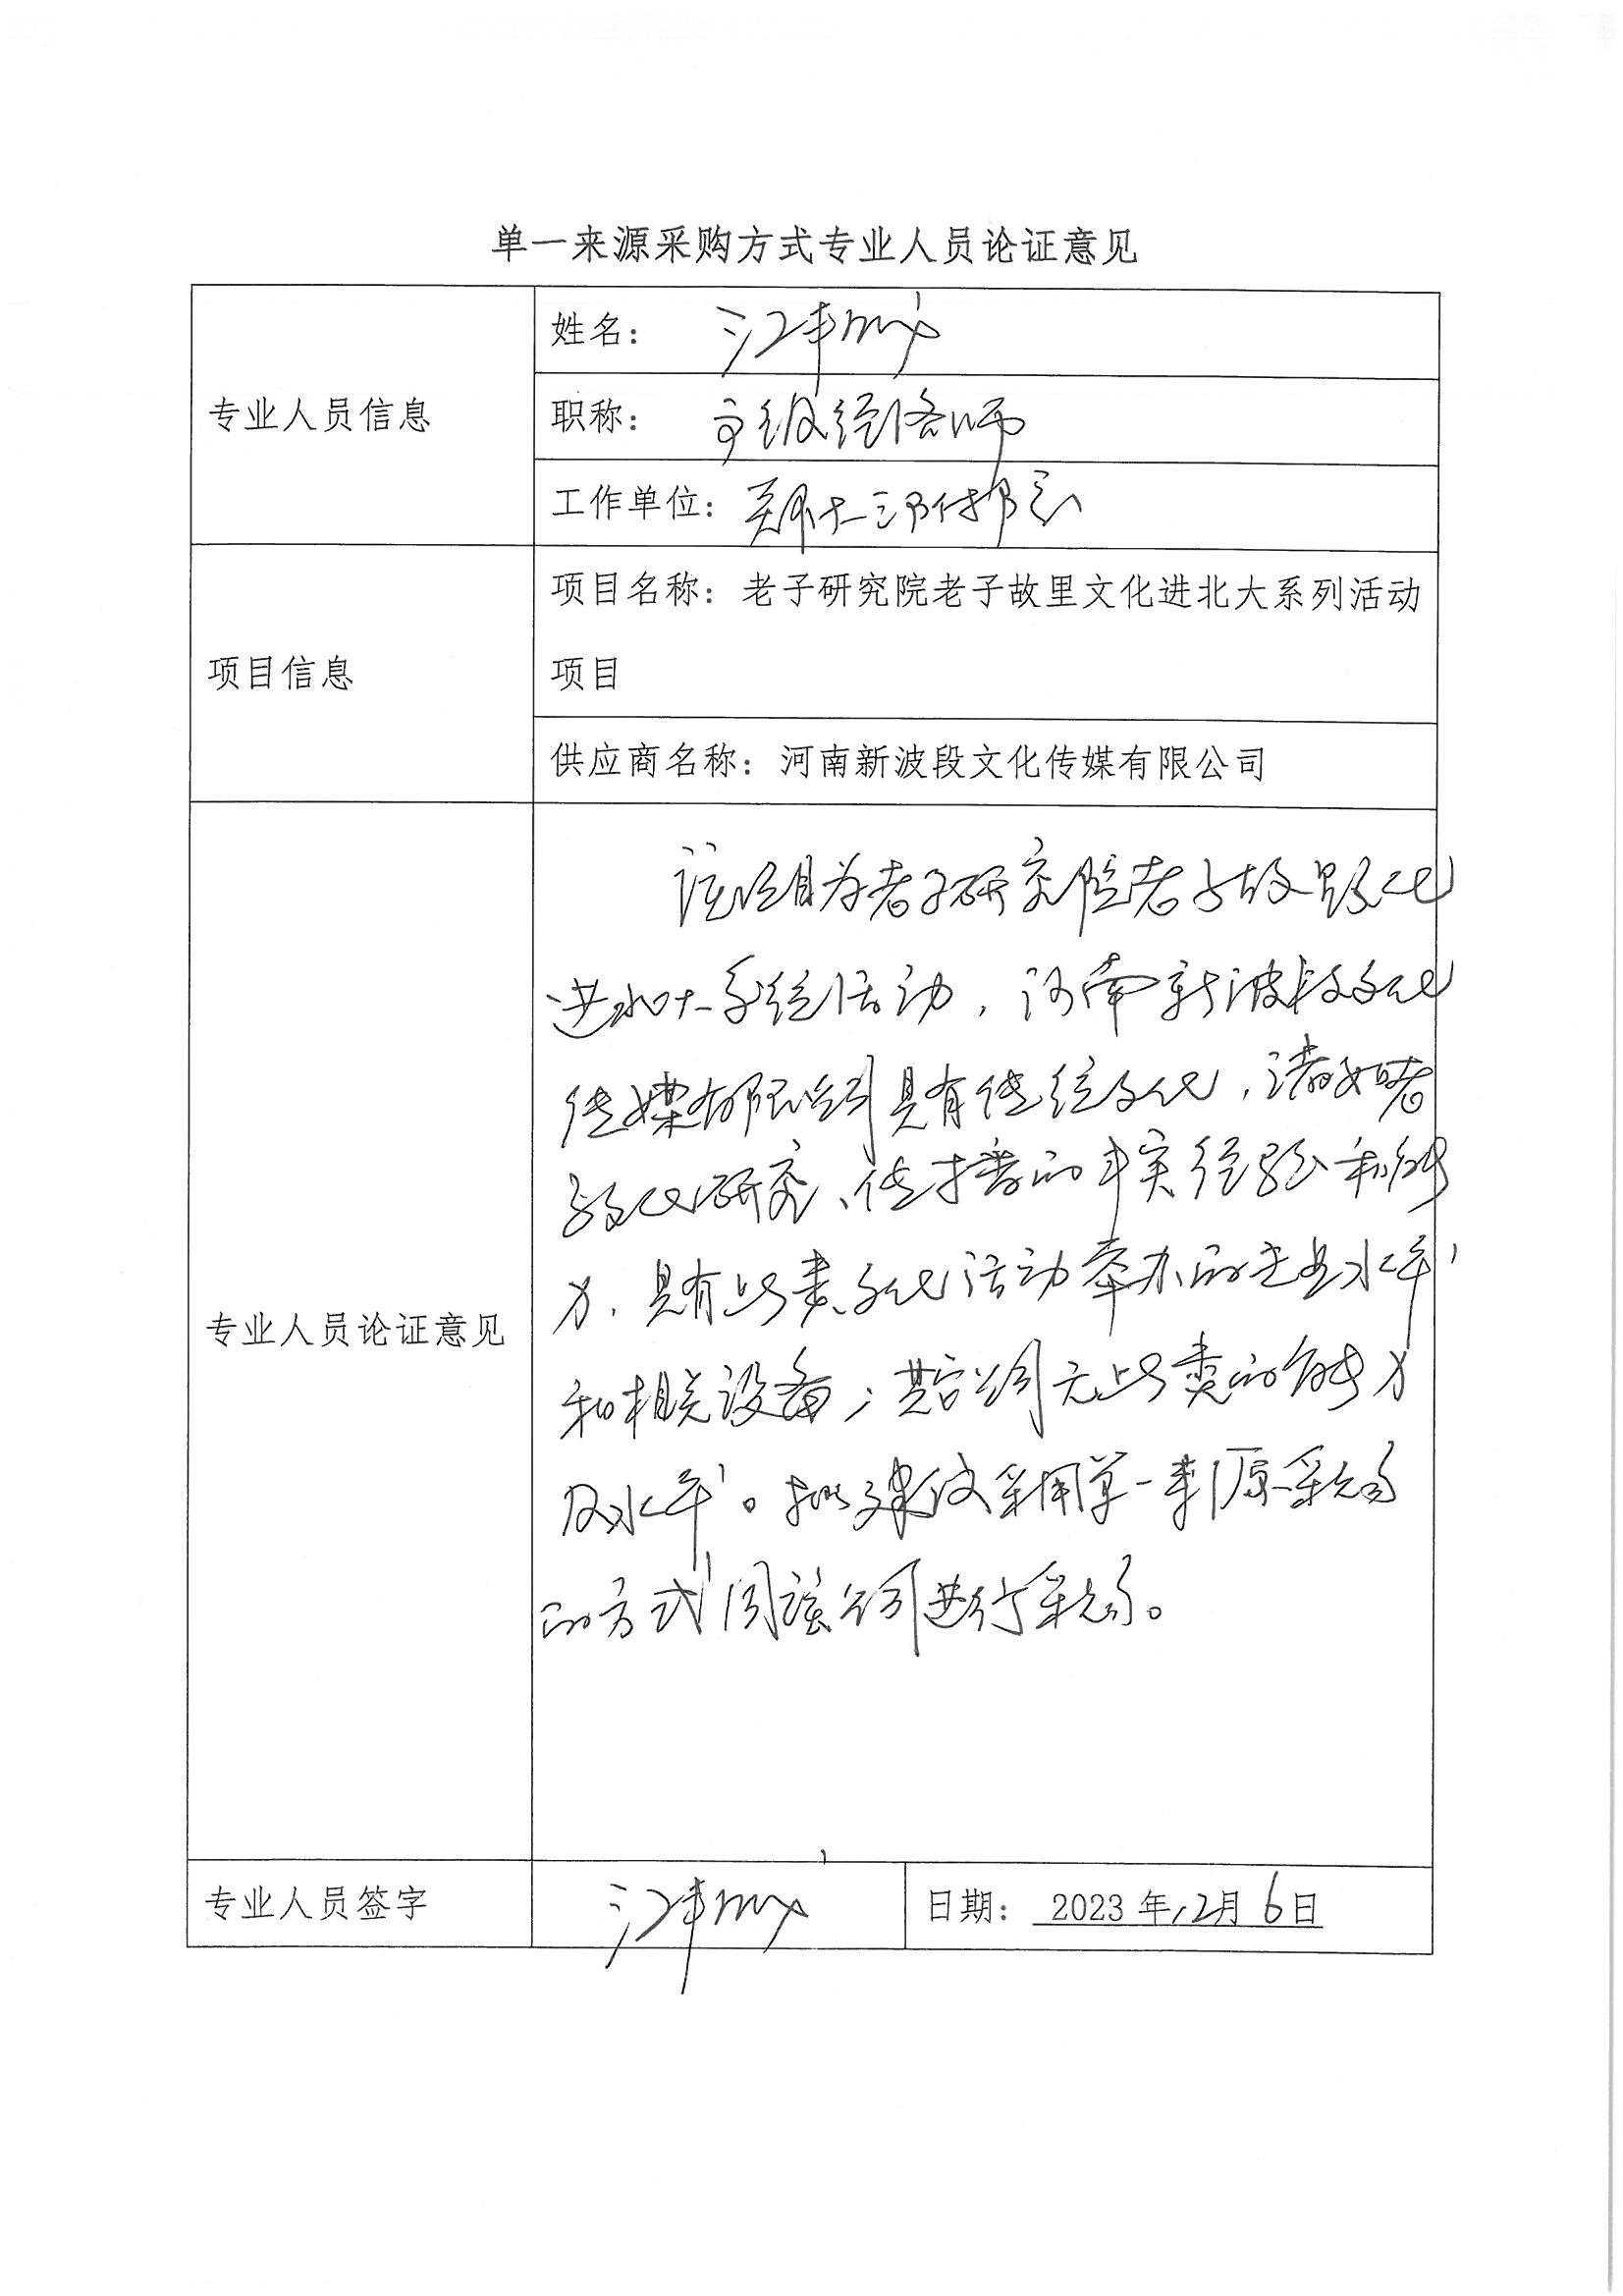 单一来源采购方式专业人员论证意见
专业人员信息
姓名：
职称：高级经济师
工作单位：郑大三附院
项目信息
项目名称：老子研究院老子故里文化进北大系列活动
项目
供应商名称：河南新波段文化传媒有限公司
专业人员论证意见
该项目为老子研究院老子故里文化
进北大系统活动，河南新波段文化
传媒有限公司具有传统文化，诸如老
子文化研究、传播的丰实经验和能
力，具有此类文化活动举办的专业水平
和相关设备；其它公司无此类的能力
及水平。故建议采用单一来源采购
的方式向该公司进行采购。
专业人员签字
日期：2023年12月6日